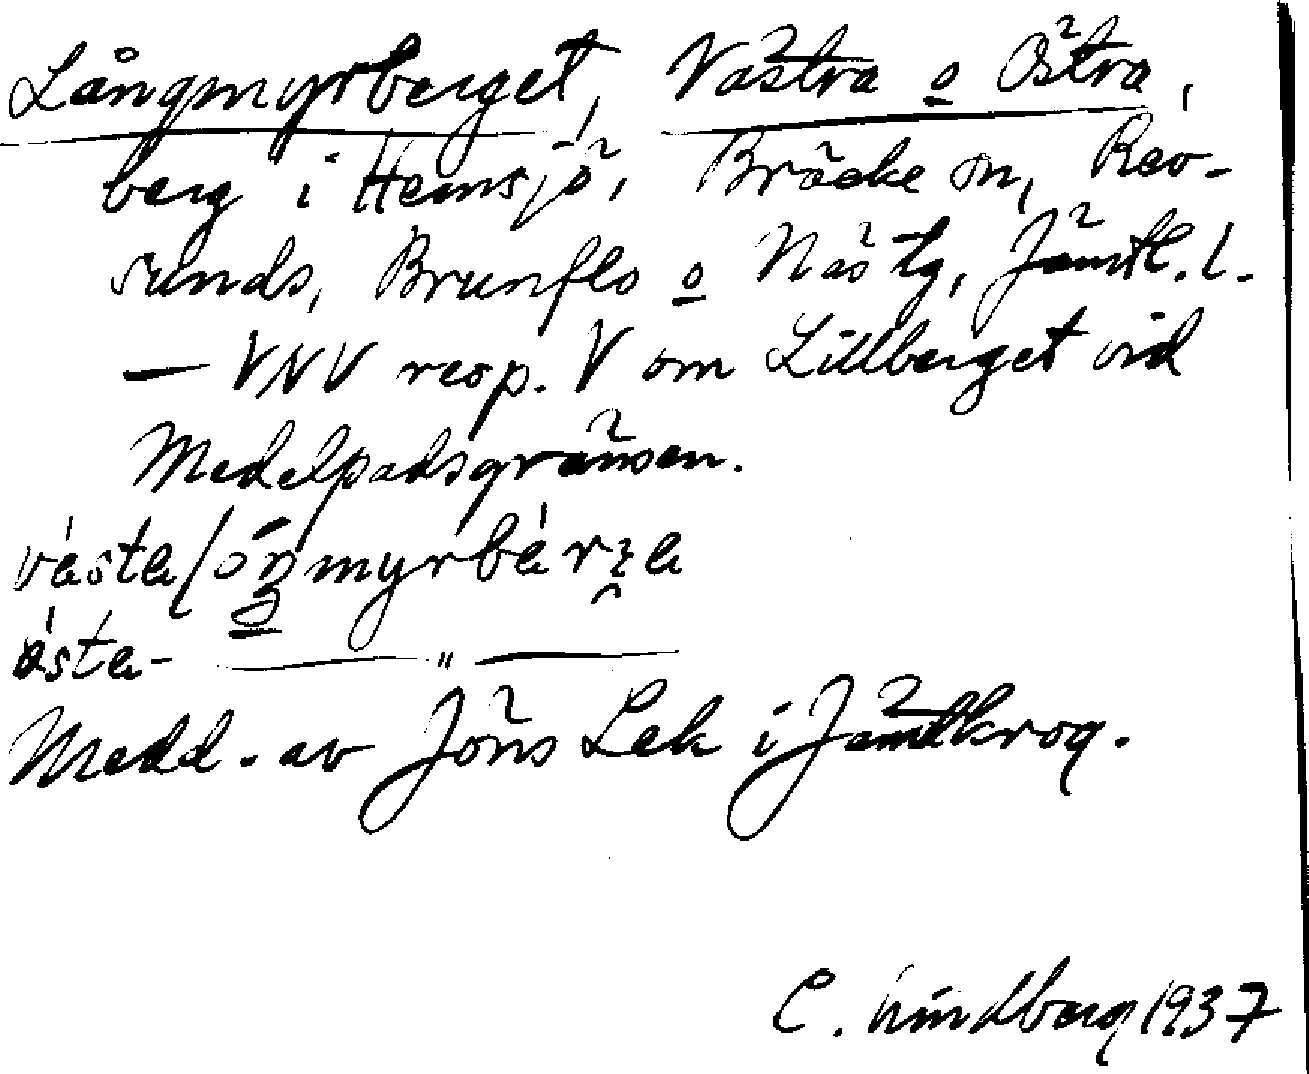 Långmyrberget, Västra o Östra,
berg i Hemsjö, Bräcke sn, Rev-
sunds, Brunflo o Näs tg, Jämtl. l.
— VNV resp. V om Lillberget vid
Medelpadsgränsen.
västa
östa- — " —
Medd. av Jöns Lek i Jämtkrog.
C. Lindberg 1937